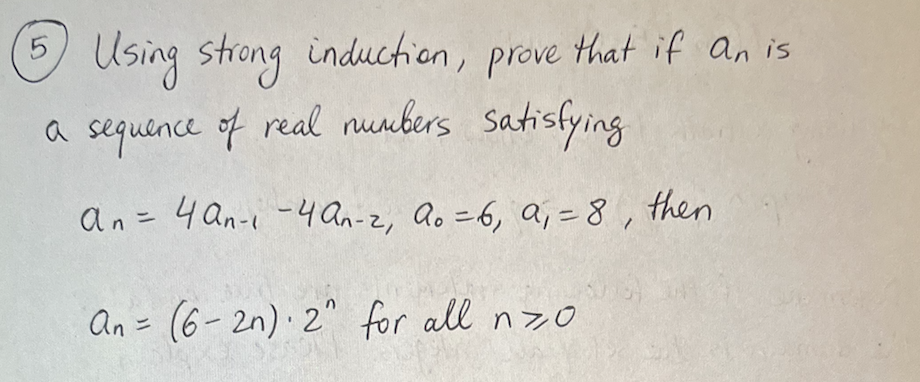 ⑤ Using strong induction, prove that if aₙ is
a sequence of real numbers satisfying
aₙ = 4aₙ₋₁ - 4aₙ₋₂, a₀ = 6, a₁ = 8, then
aₙ = (6 - 2n) · 2ⁿ for all n ⩾ 0